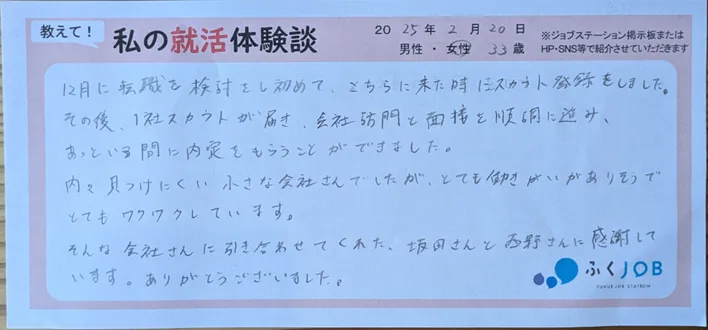 教えて！
私の就活体験談
2025年2月20日
男性・女性 33歳
※ジョブステーション掲示板または
HP・SNS等で紹介させていただきます
12月に転職を検討をし初めて、こちらに来た時にスカウト登録をしました。
その後、1社スカウトが届き、会社訪問と面接と順調に進み、
あっという間に内定をもらうことができました。
内々見つけにくい小さな会社さんでしたが、とても働きがいがありそうで
とてもワクワクしています。
そんな会社さんに引き合わせてくれた、坂田さんと西野さんに感謝して
います。ありがとうございました。
ふくJOB
FUKUI JOB STATION